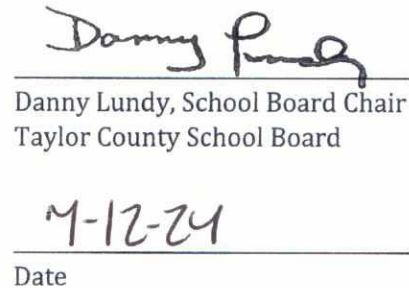 Danny Lundy
Danny Lundy, School Board Chair
Taylor County School Board
Date